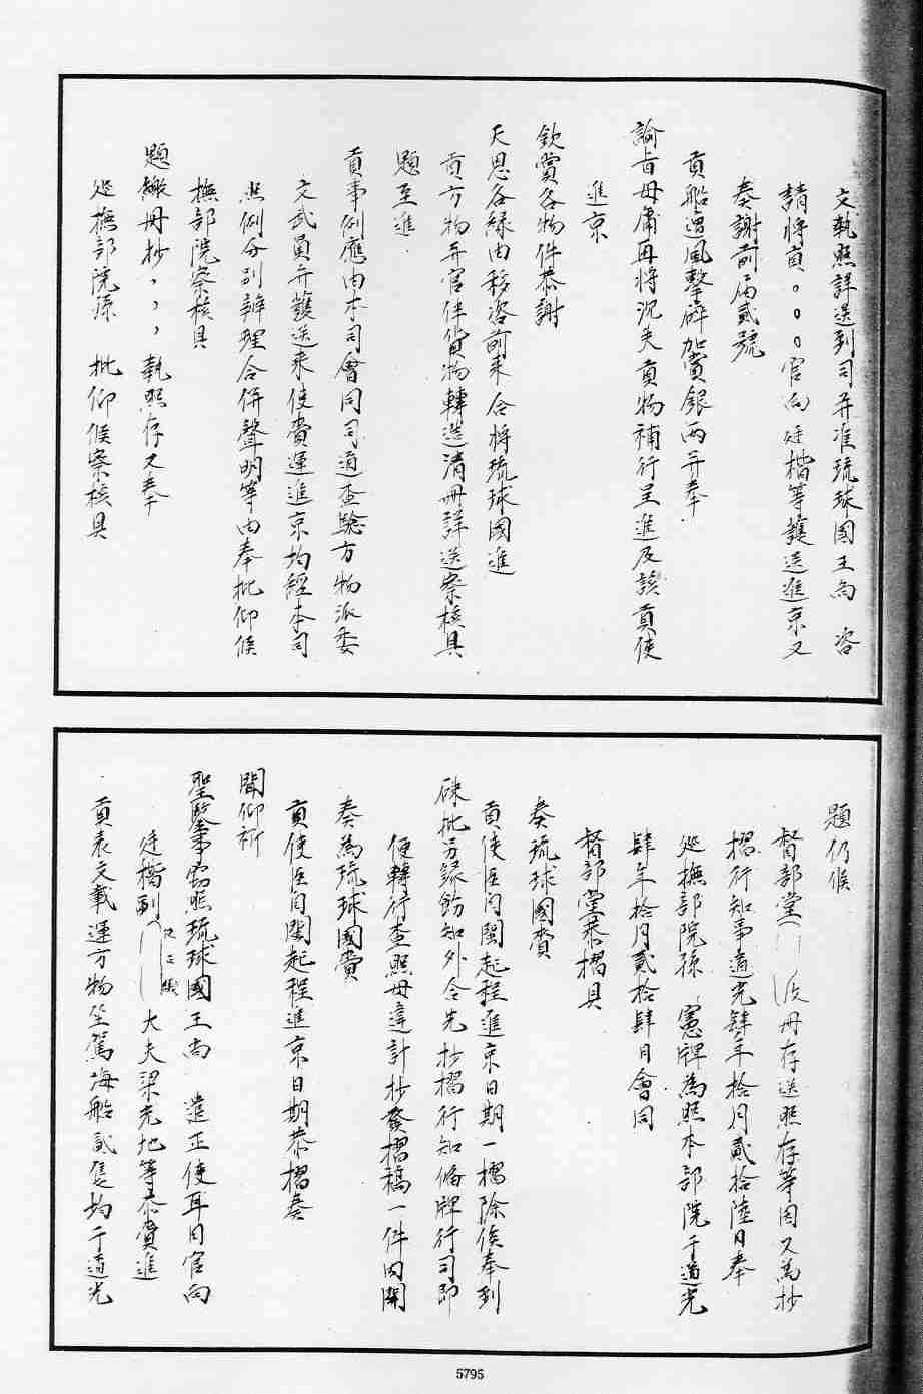 文執照詳送到司并准琉球國王尚　咨
請將貢。。。官向廷楷等護送進京又
奏謝前届貳號
貢船遭風擊碎加賞銀兩并奉
諭旨毋庸再將沉失貢物補行呈進及該貢使
進京
欽賞各物件恭謝
天恩各緣由移咨前来合將琉球國進
貢方物并官伴貨物轉造清冊詳送察核具
題至進
貢事例應由本司會同司道查驗方物派委
文武員弁護送来使賫運進京均經本司
照例分別辦理合併聲明等由奉批仰候
撫部院察核具
題繳冊抄，，，執照存又奉
巡撫部院孫　批仰候察核具
題仍候
督部堂 批冊存送照存等因又為抄
摺行知事道光肆年拾月貳拾陸日奉
巡撫部院孫　憲牌為照本部院于道光
肆年拾月貳拾肆日會同
督部堂恭摺具
奏琉球國賫
貢使臣自閩起程進京日期一摺除俟奉到
硃批另錄飭知外合先抄摺行知偹牌行司即
便轉行查照毋違計抄發摺稿一件內開
奏為琉球國賫
貢使臣自閩起程進京日期恭摺奏
聞仰祈
聖鑒事竊照琉球國王尚　遣正使耳目官向
廷楷副 大夫梁光地等恭賫進
貢表文載運方物坐駕海船貳隻均于道光
5795